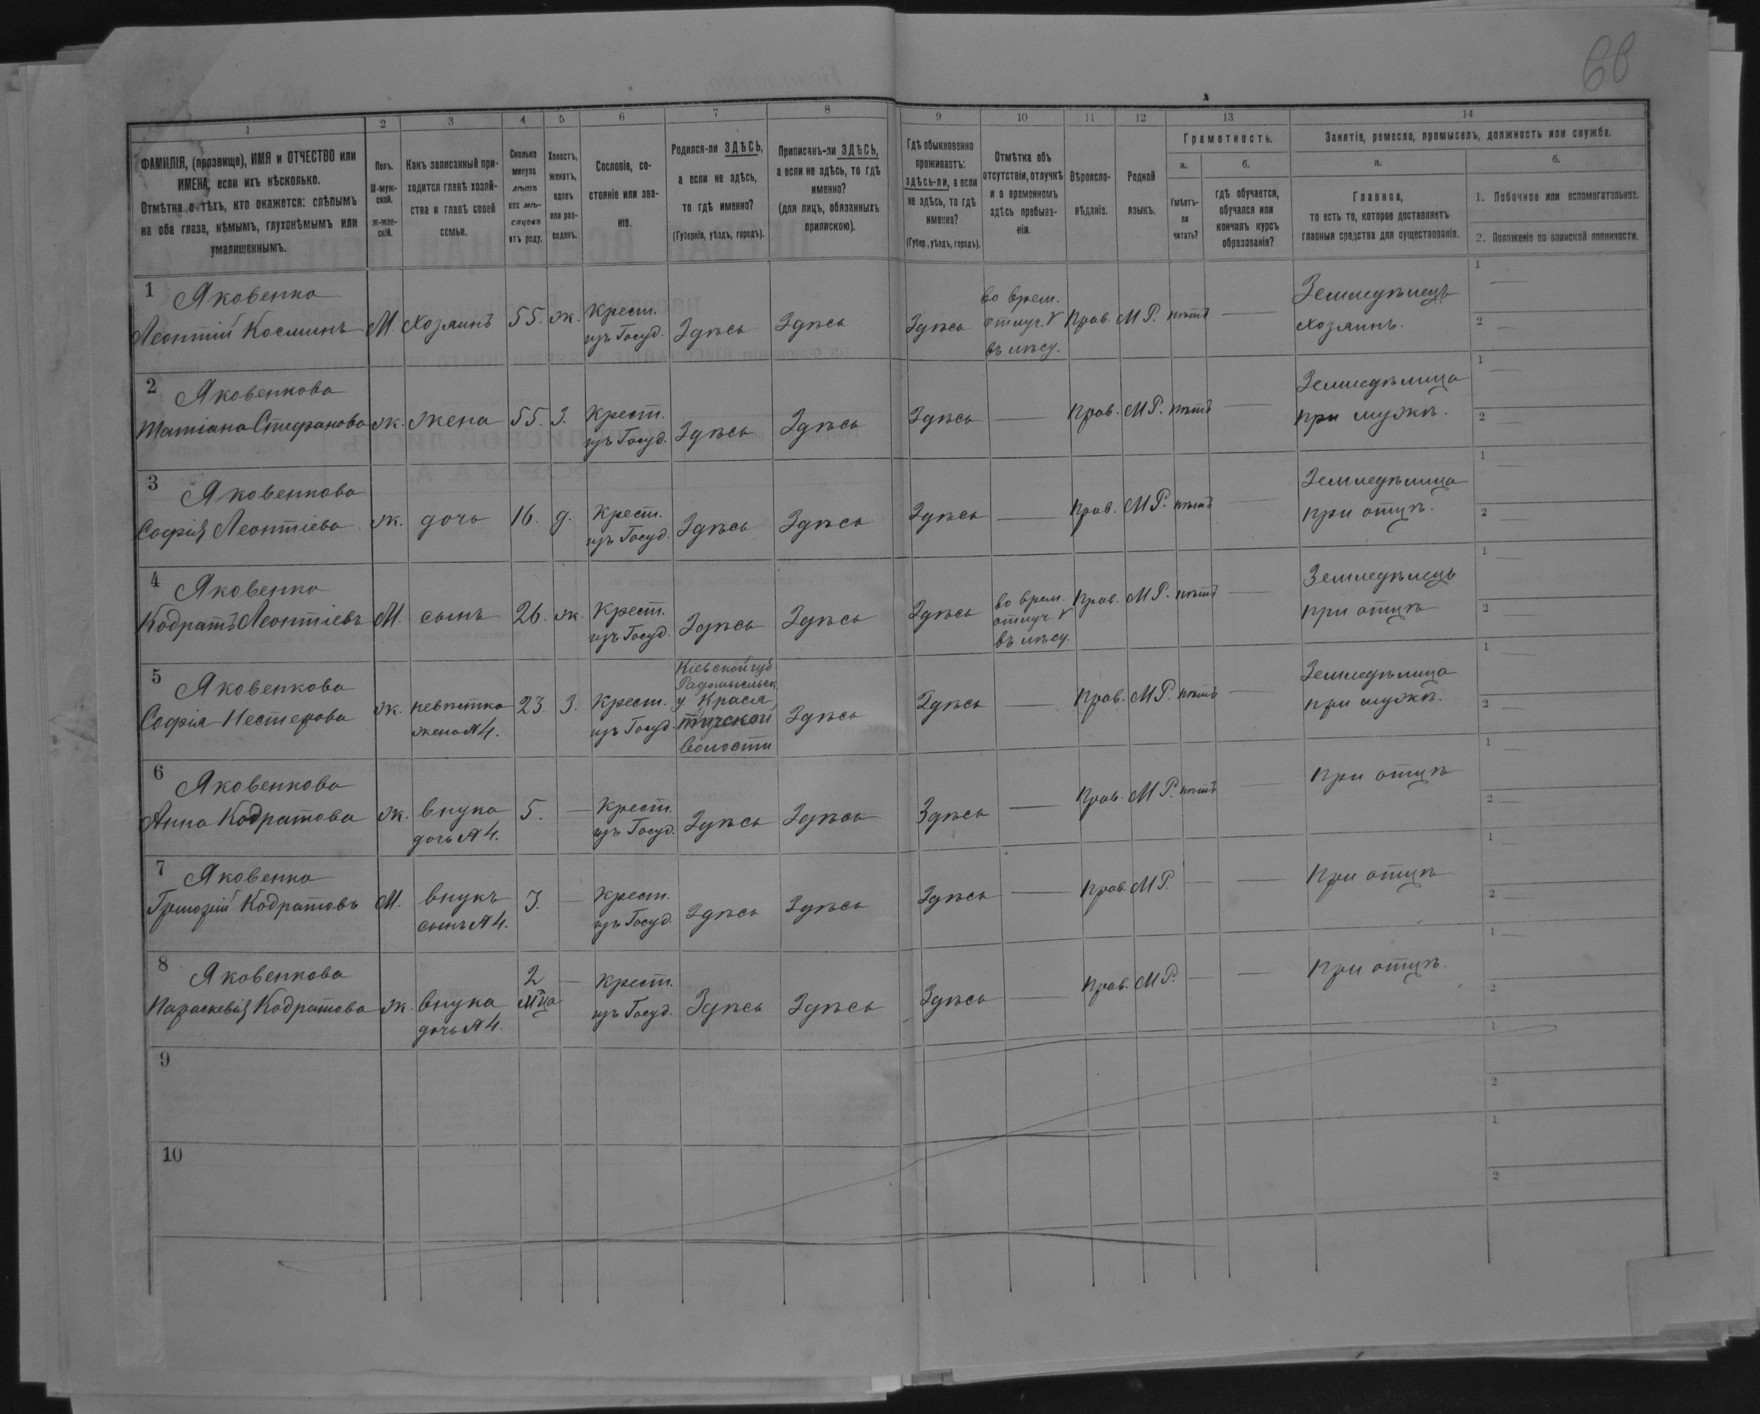 68
1
2
3
4
5
6
7
8
9
10
11
12
13
14
ФАМИЛІЯ, (прозвище), ИМЯ и ОТЧЕСТВО или
ИМЕНА, если ихъ нѣсколько.
Отмѣтка о тѣхъ, кто окажется: слѣпымъ
на оба глаза, нѣмымъ, глухонѣмымъ или
умалишеннымъ.
Полъ.
М-муж-
ской.
Ж-жен-
скій.
Какъ записанный при-
ходится главѣ хозяй-
ства и главѣ своей
семьи.
Сколько
минуло
лѣтъ
или мѣ-
сяцевъ
отъ роду.
Холостъ,
женатъ,
вдовъ
или раз-
веденъ.
Сословіе, со-
стояніе или зва-
ніе.
Родился-ли ЗДѢСЬ,
а если не здѣсь,
то гдѣ именно?
(Губернія, уѣздъ, городъ).
Приписанъ-ли ЗДѢСЬ,
а если не здѣсь, то гдѣ
именно?
(для лицъ, обязанныхъ
припискою).
Гдѣ обыкновенно
проживаетъ:
здѣсь-ли, а если
не здѣсь, то гдѣ
именно?
(Губер., уѣздъ, городъ).
Отмѣтка объ
отсутствіи, отлучкѣ
и о временномъ
здѣсь пребыва-
ніи.
Вѣроиспо-
вѣданіе.
Родной
языкъ.
Грамотность.
а.
Умѣетъ-
ли
читать?
б.
гдѣ обучается,
обучался или
кончилъ курсъ
образованія?
Занятіе, ремесло, промыселъ, должность или служба.
а.
Главное,
то есть то, которое доставляетъ
главныя средства для существованія.
б.
1. Побочное или вспомогательное.
2. Положеніе по воинской повинности.
1 Яковенко
Леонтій Косминъ М. Хозяинъ 55. ж. Крест. изъ Госуд. Здѣсь Здѣсь Здѣсь во врем. отлуч. въ лѣсу. Прав. МР. нѣтъ — Земледѣлецъ хозяинъ. 1 — 2 —
2 Яковенкова
Татіана Стефанова ж. жена 55. З. Крест. изъ Госуд. Здѣсь Здѣсь Здѣсь — Прав. МР. нѣтъ — Земледѣлица при мужѣ. 1 — 2 —
3 Яковенкова
Софія Леонтіева ж. дочь 16. д. Крест. изъ Госуд. Здѣсь Здѣсь Здѣсь — Прав. МР. нѣтъ — Земледѣлица при отцѣ. 1 — 2 —
4 Яковенко
Кодратъ Леонтіевъ М. сынъ 26. ж. Крест. изъ Госуд. Здѣсь Здѣсь Здѣсь во врем. отлуч. въ лѣсу Прав. МР. нѣтъ — Земледѣлецъ при отцѣ 1 — 2 —
5 Яковенкова
Софія Нестерова ж. невѣстка жена №4. 23. З. Крест. изъ Госуд. Кіевской губ. Радомысльск. у волости Здѣсь Здѣсь — Прав. МР. нѣтъ — Земледѣлица при мужѣ. 1 — 2 —
6 Яковенкова
Анна Кодратова ж. внука дочь №4. 5. — Крест. изъ Госуд. Здѣсь Здѣсь Здѣсь — Прав. МР. нѣтъ — При отцѣ 1 — 2 —
7 Яковенко
Григорій Кодратовъ М. внукъ сынъ №4. 3. — Крест. изъ Госуд. Здѣсь Здѣсь Здѣсь — Прав. МР. — — При отцѣ 1 — 2 —
8 Яковенкова
Параскевія Кодратова ж. внука дочь №4. 2 мца — Крест. изъ Госуд. Здѣсь Здѣсь Здѣсь — Прав. МР. — — При отцѣ. 1 — 2 —
9 1 2
10 1 2